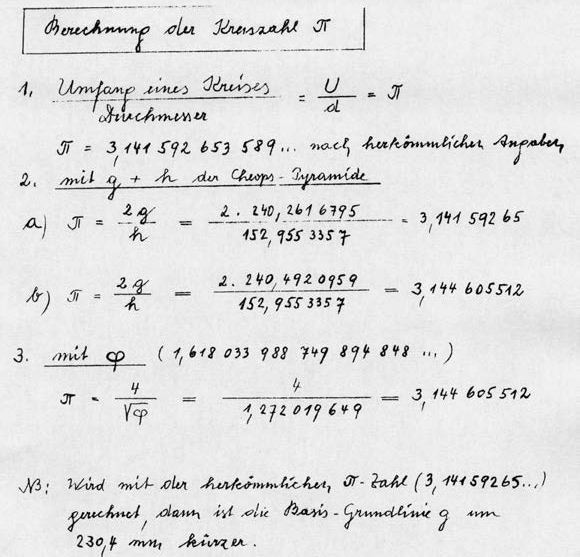 Berechnung der Kreiszahl π
1. Umfang eines Kreises / Durchmesser = U/d = π
π = 3,141 592 653 589... nach herkömmlichen Angaben
2. mit g + h der Cheops-Pyramide
a) π = 2g/h = 2 · 240,261 6795 / 152,955 3357 = 3,141 592 65
b) π = 2g/h = 2 · 240,492 0959 / 152,955 3357 = 3,144 605 512
3. mit φ (1,618 033 988 749 894 848 ...)
π = 4/√φ = 4 / 1,272 019 649 = 3,144 605 512
NB: Wird mit der herkömmlichen π-Zahl (3,14159265...)
gerechnet, dann ist die Basis-Grundlinie g um
230,4 mm kürzer.